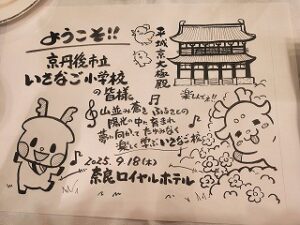 ようこそ!!
京丹後市立
いさなご小学校
の皆様
平城京大極殿
楽しんでネ!!
山並み蒼き ふるさとの
陽光の中に 包まれ
夢に向かて たゆみなく
楽しく学ぶ いさなご校
2025.9.18(木)
奈良ロイヤルホテル